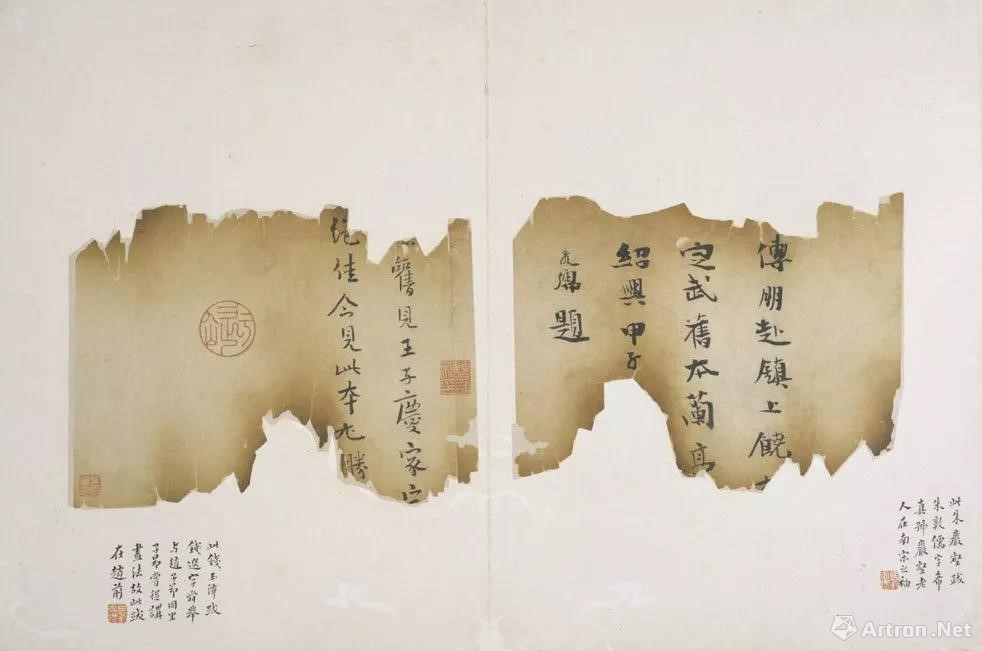 傅朋赴鎮上饒
定武舊本蘭亭
紹興甲子
題
此朱巖壑跋
朱敦儒字希
真號巖壑老
人在南宋之初
舊見王子慶家定
絶佳今見此本尤勝
此錢玉潭跋
錢選字舜舉
與趙子昂同里
子昂嘗從講
畫法故此跋
在趙前
Artron.Net